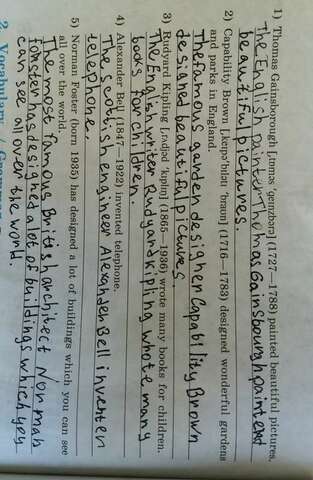 1) Thomas Gainsborough [ˌtɒməs ˈgeɪnzbərə] (1727—1788) painted beautiful pictures.
The English painter Thomas Gainsbourgh paintend
beautiful pictures.
2) Capability Brown [ˌkeɪpəˈbɪləti ˈbraʊn] (1716—1783) designed wonderful gardens
and parks in England.
The famous garden designer Capability Brown
designed beautiful pictures.
3) Rudyard Kipling [ˌrʌdjəd ˈkɪplɪŋ] (1865—1936) wrote many books for children.
The English writer Rudyand Kipling whote many
books for children.
4) Alexander Bell (1847—1922) invented telephone.
The Scottish engineer Alexanden Bell inventen
telephone.
5) Norman Foster (born 1935) has designed a lot of buildings which you can see
all over the world.
The most famous British architect Nonman
has designed a lot of buildings which you
can see all over the world.
2. Vocabulary / Grammar